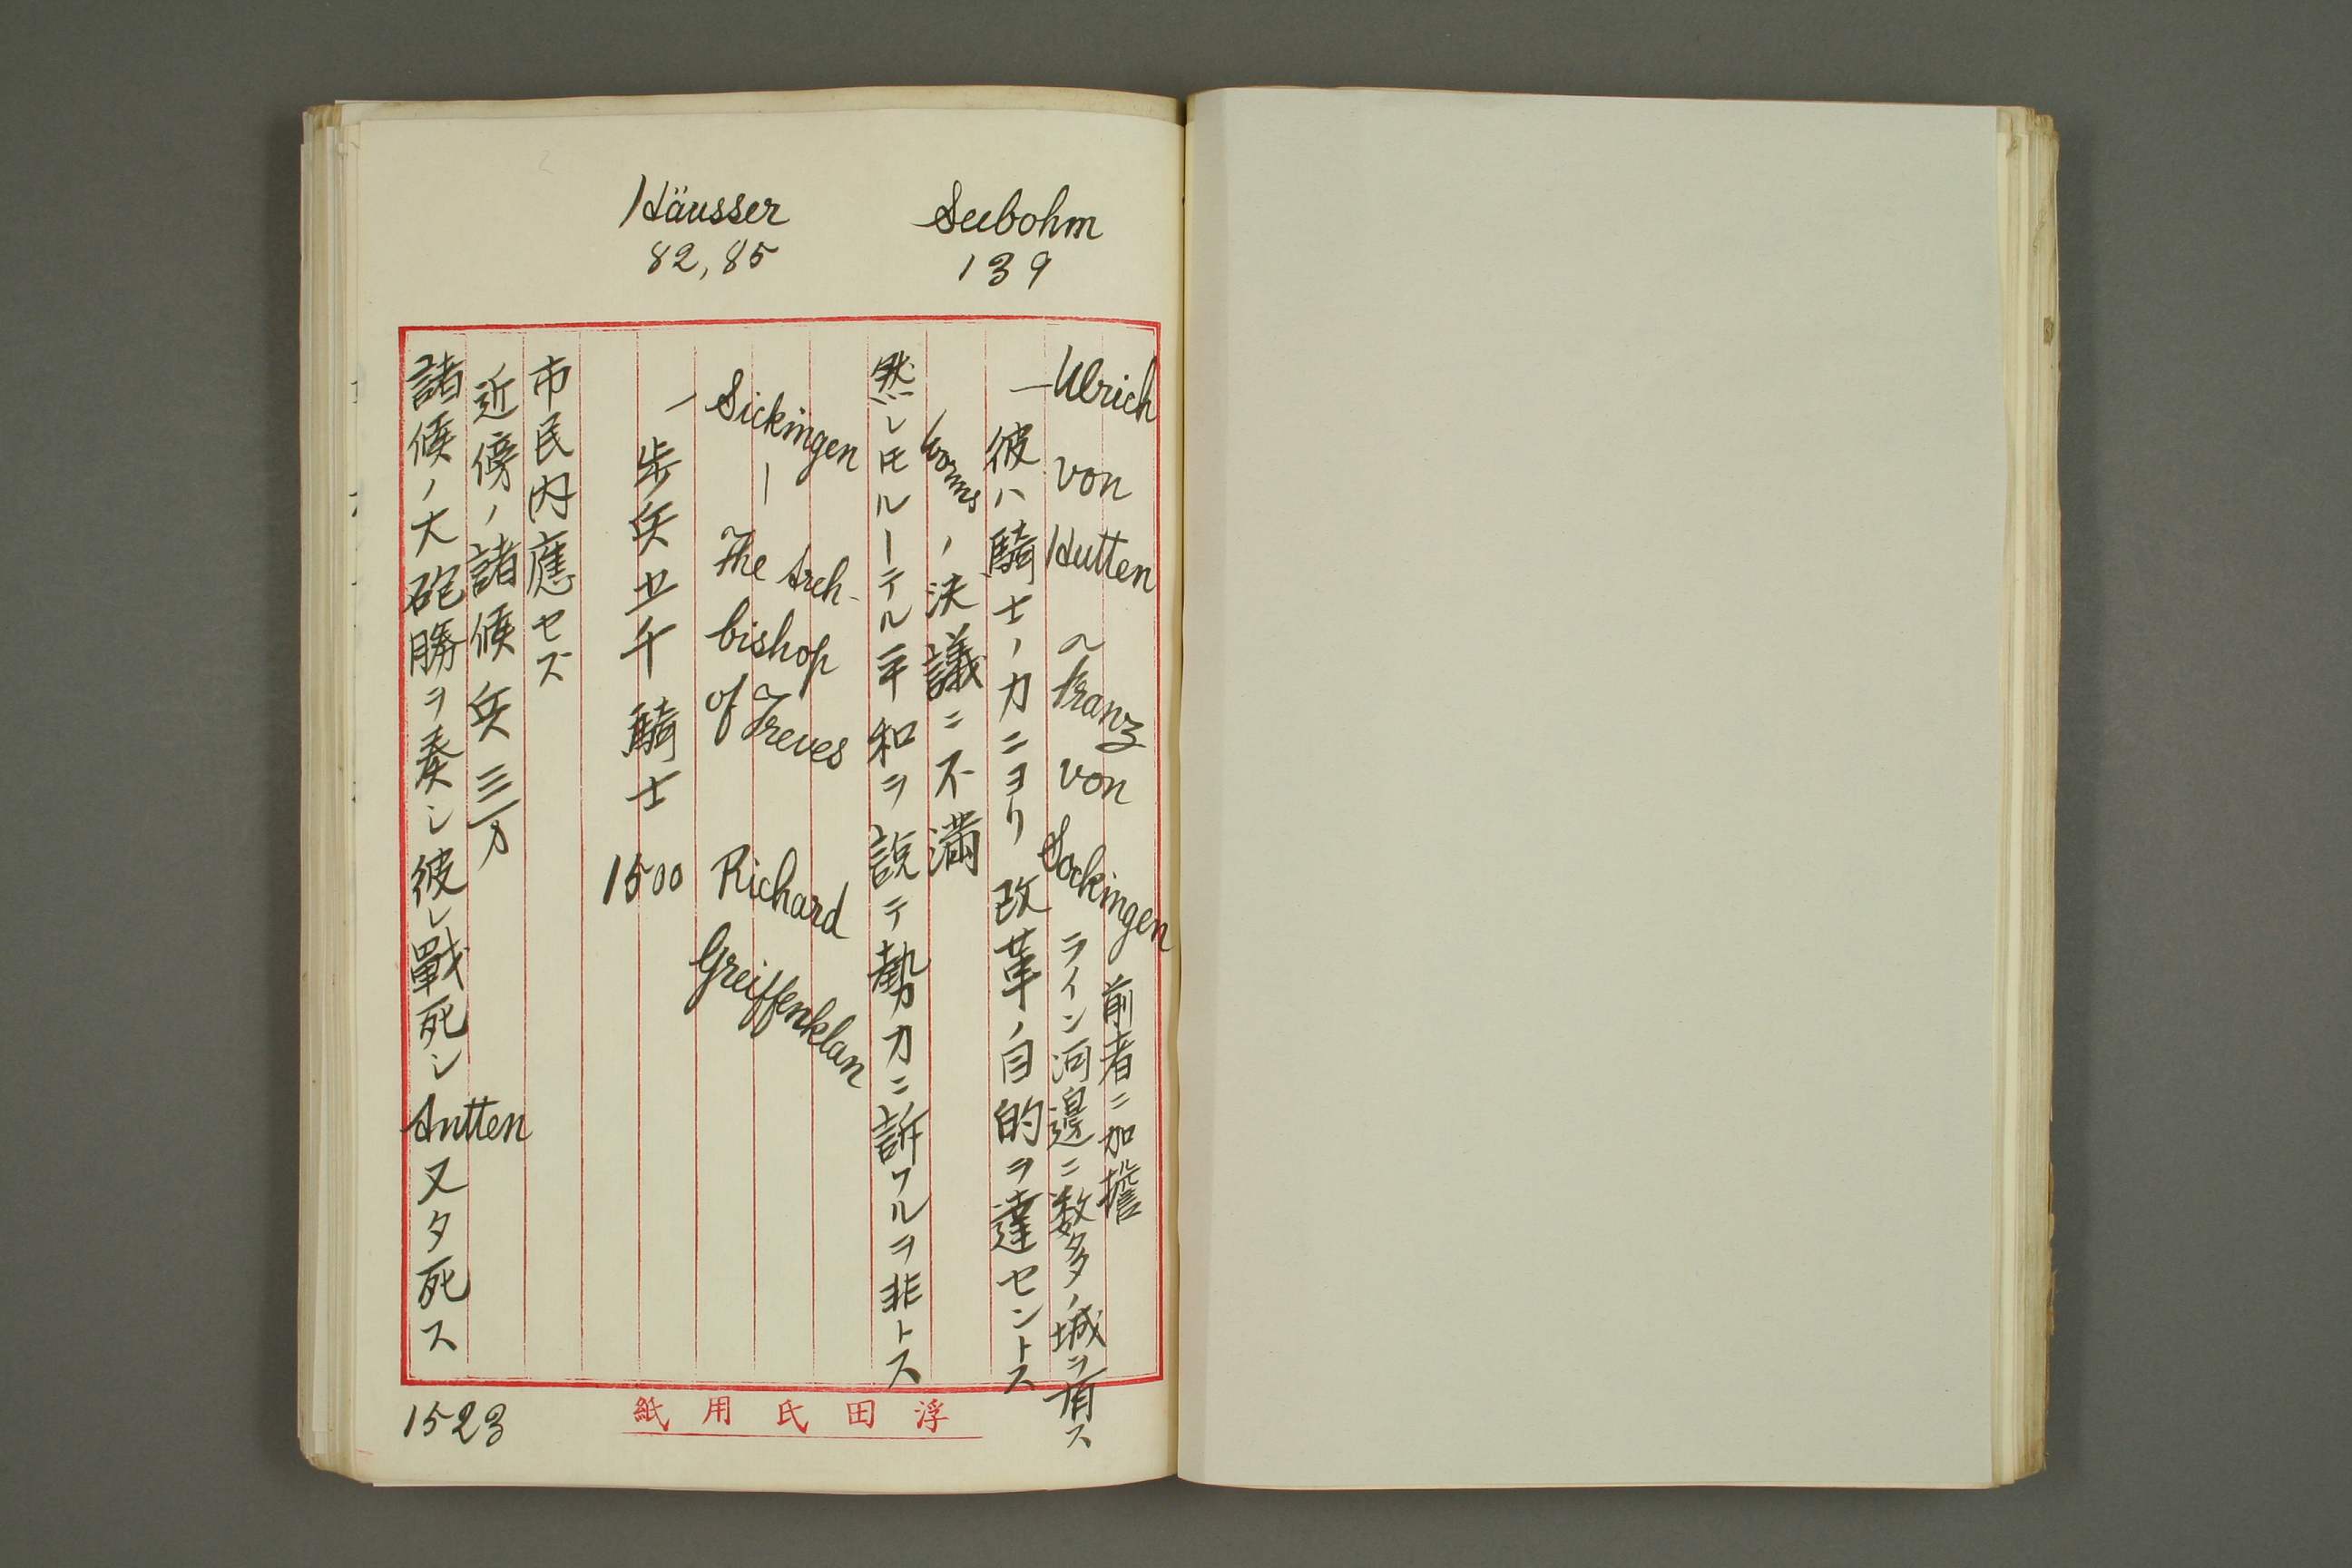 Seebohm
139
Häusser
82,85
Ulrich von Hutten Franz von Sickingen
前者ニ加擔
ライン河邊ニ数多ノ城ヲ有ス
一彼ハ騎士ノ力ニヨリ改革ノ目的ヲ達セントス
Wormsノ決議ニ不満
然レ𪜈ルーテル平和ヲ說テ勢力ニ訴フルヲ非トス
一Sickingen — The Arch-bishop of Treves Richard Greiffenklan
歩兵五千 騎士 1500
市民内應セズ
近傍ノ諸侯 兵三万
諸侯ノ大砲勝ヲ奏シ彼レ戰死シ Hutten 又タ死ス
1523
浮田氏用紙